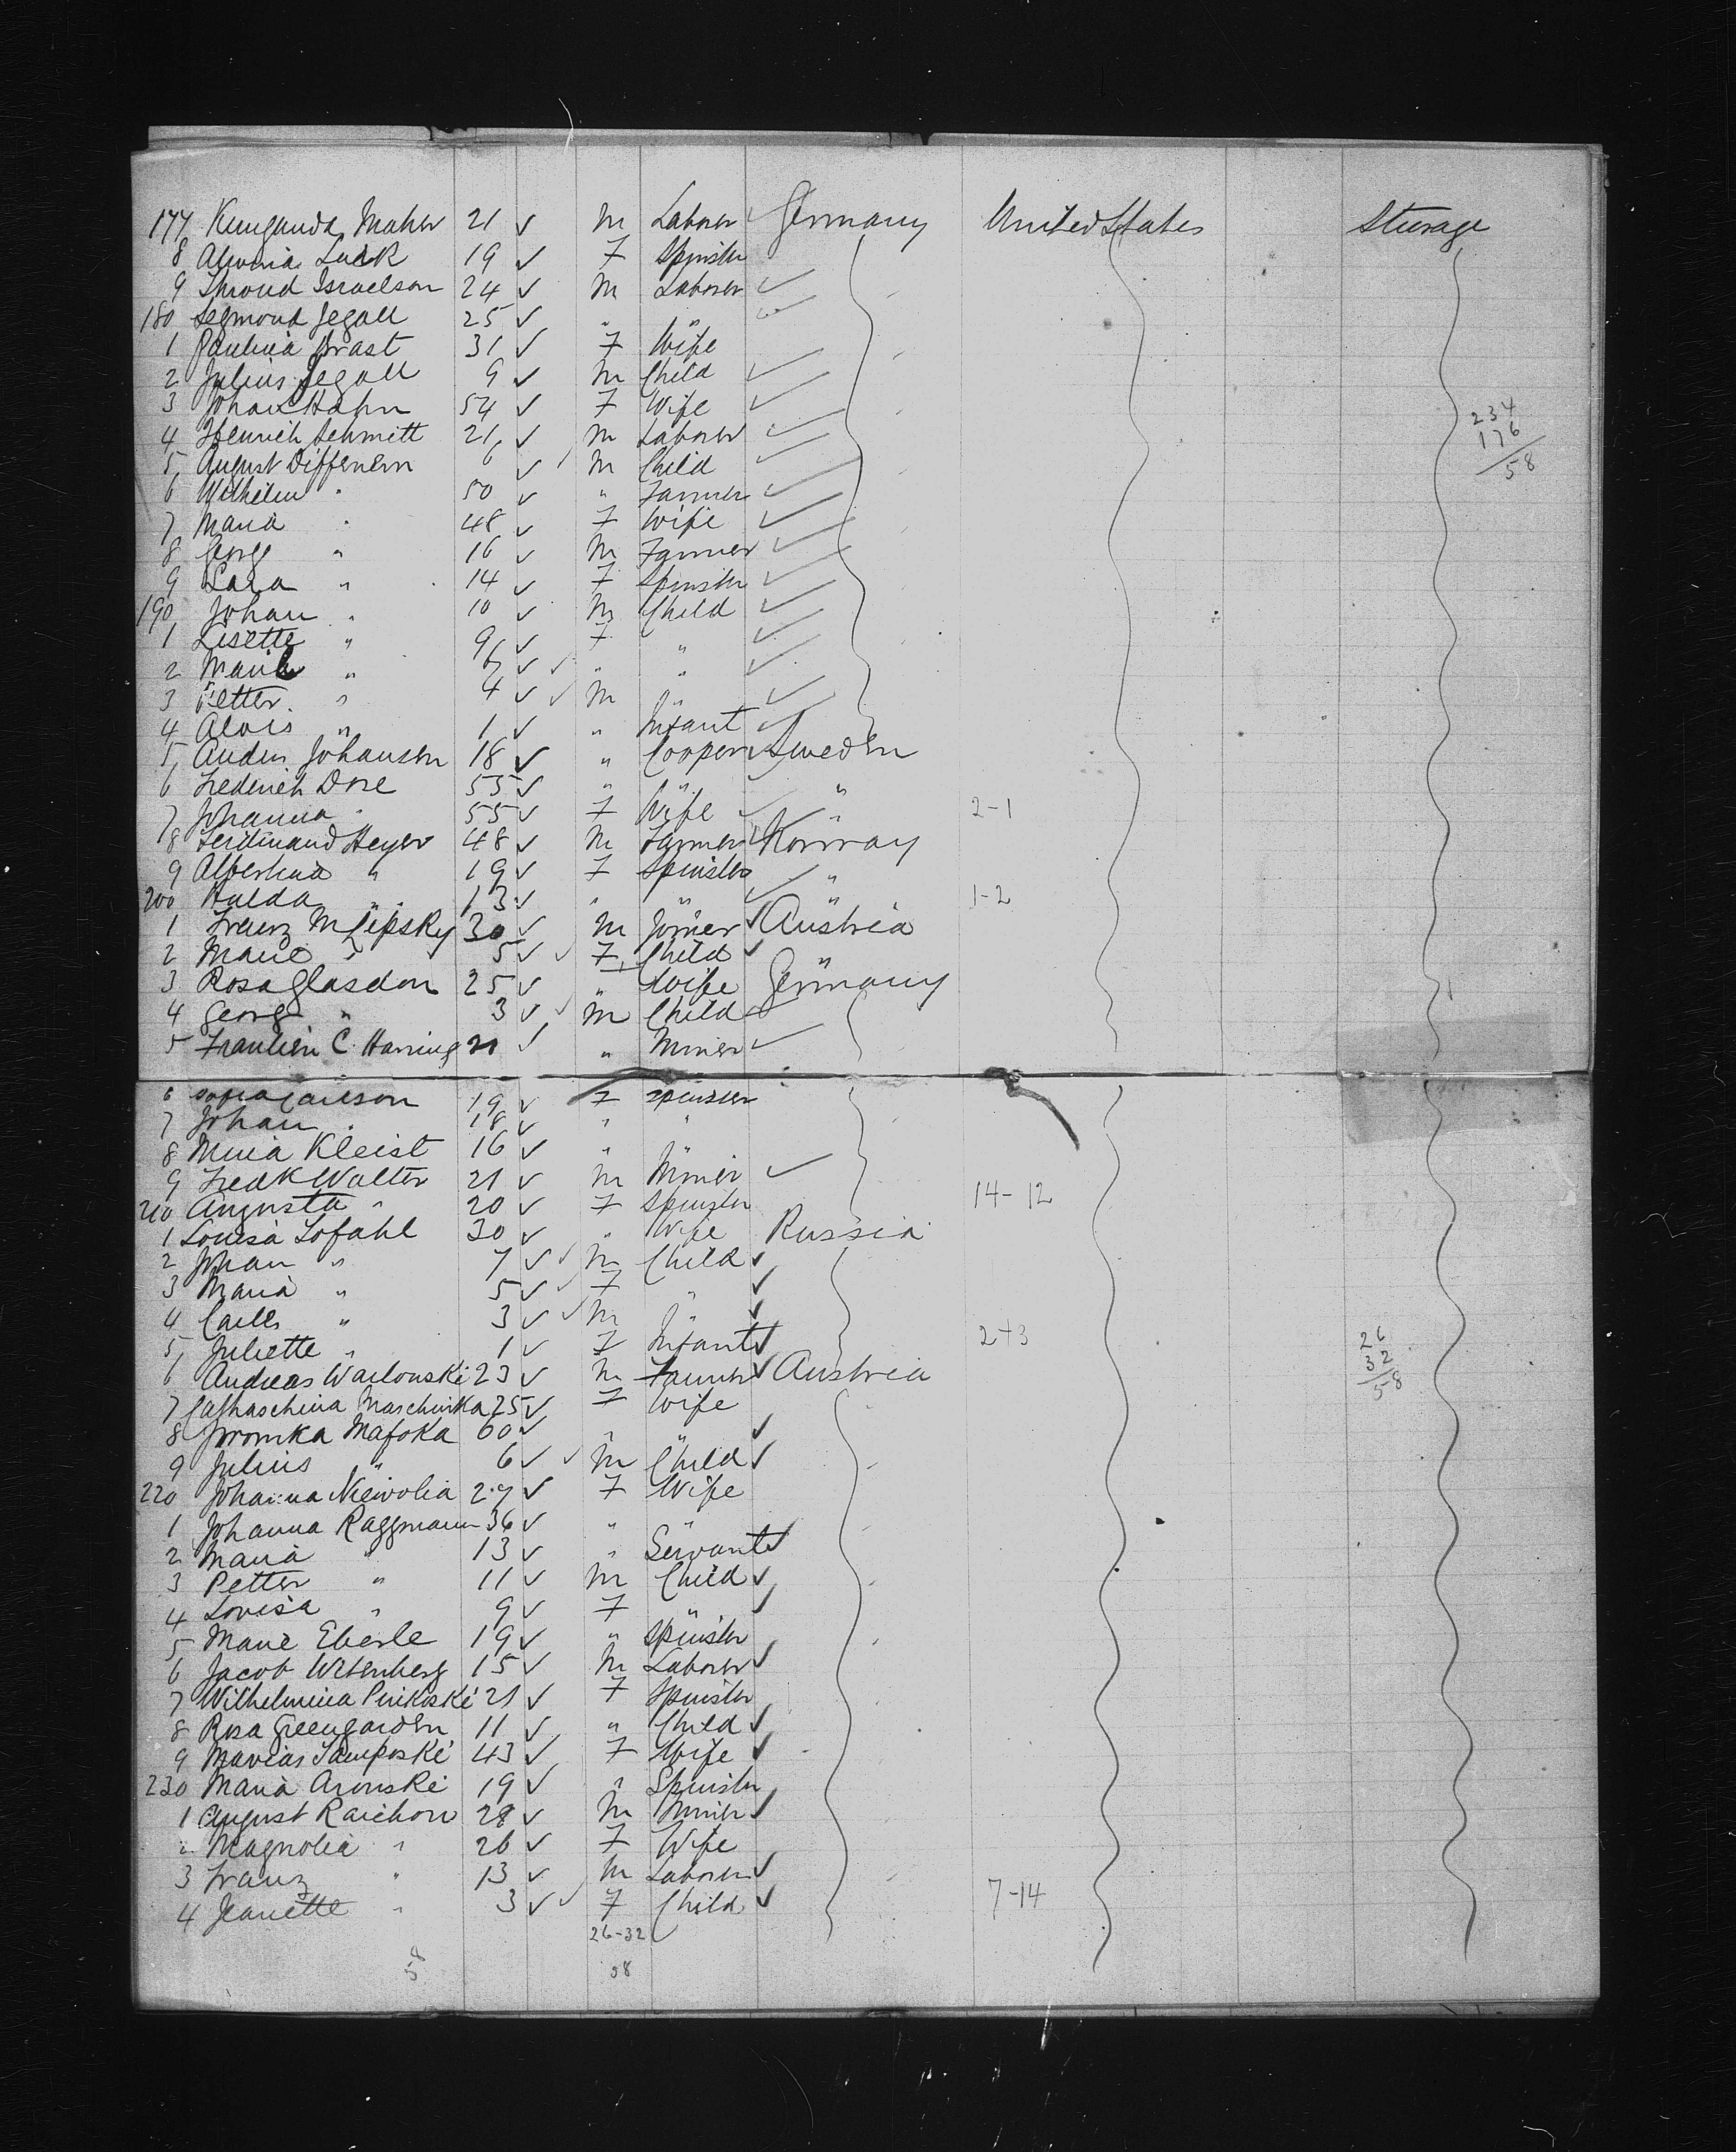 177 Kunganda Maher 21 ✓ M Laborer Germany United States Sturage
8 Alwina Luck 19 ✓ F Spinster
9 Israelson 24 ✓ M Laborer ✓
180 Segmond Segall 25 ✓ " "
1 Paulina Brast 31 ✓ F Wife
2 Julius Segall 9 ✓ M Child ✓
3 Johan Hahn 54 ✓ F Wife ✓
4 Heinrich Schmitt 21 ✓ M Laborer ✓
234
176
58
5 August Differnern 6 ✓ M Child ✓
6 Wilhelm " 50 ✓ " Farmer ✓
7 Maria " 48 ✓ F Wife ✓
8 Georg " 16 ✓ M Farmer ✓
9 Lara " 14 ✓ F Spinster ✓
190 Johan " 10 ✓ M Child ✓
1 Lisette " 9 ✓ F " ✓
2 Marie " 6 ✓ ✓ " " ✓
3 Petter " 4 ✓ ✓ M " ✓
4 Alois " 1 ✓ " Infant ✓
5 Anders Johansen 18 ✓ " Cooper Sweden
6 Frederich Dore 53 ✓ " " "
7 Johanna " 55 ✓ F Wife ✓ 2-1
8 Ferdinand Heyer 48 ✓ M Farmer Norway
9 Albertina " 19 ✓ F Spinster "
200 Hulda " 13 ✓ " " ✓ 1-2
1 Franz Mlipsky 30 ✓ M Joiner ✓ Austria
2 Marie " 5 ✓ ✓ F Child ✓ "
3 Rosa Glasdon 25 ✓ " Wife Germany
4 Georg " 3 ✓ ✓ M Child ✓
5 C. Harring 21 ✓ " Miner ✓
6 Sofia Carlson 19 ✓ F Spinster
7 Johan " 18 ✓ " "
8 Mina Kleist 16 ✓ " "
9 Fredk Walter 21 ✓ M Miner ✓
210 Augusta " 20 ✓ F Spinster 14-12
1 Louisa Lofahl 30 ✓ " Wife Russia
2 Johan " 7 ✓ ✓ M Child ✓
3 Maria " 5 ✓ ✓ F " ✓
4 Carlls " 3 ✓ ✓ M " ✓
5 Juliette " 1 ✓ F Infant ✓ 2-3
26
32
58
6 Andreas Warlouski 23 ✓ M Farmer ✓ Austria
7 Cathaschina Maschinka 25 ✓ F Wife
8 Jrromka Mafoka 60 ✓ " " ✓
9 Julius " 6 ✓ ✓ M Child ✓
220 Johanna Niewolia 27 ✓ F Wife
1 Johanna Raggmann 36 ✓ " "
2 Maria " 13 ✓ " Servant ✓
3 Petter " 11 ✓ M Child ✓
4 Lovisa " 9 ✓ F " ✓
5 Marie Eberle 19 ✓ " Spinster
6 Jacob Witenberg 15 ✓ M Laborer ✓
7 Wilhelmina Pinkoski 21 ✓ F Spinster
8 Rosa Greengarden 11 ✓ " Child ✓
9 Marias Samposki 43 ✓ F Wife ✓
230 Maria Aronski 19 ✓ " Spinster
1 August Raichon 28 ✓ M Miner ✓
2 Magnolia " 26 ✓ F Wife
3 Franz " 13 ✓ M Laborer ✓
4 Jeanette " 3 ✓ ✓ F Child ✓ 7-14
26-32
58 58